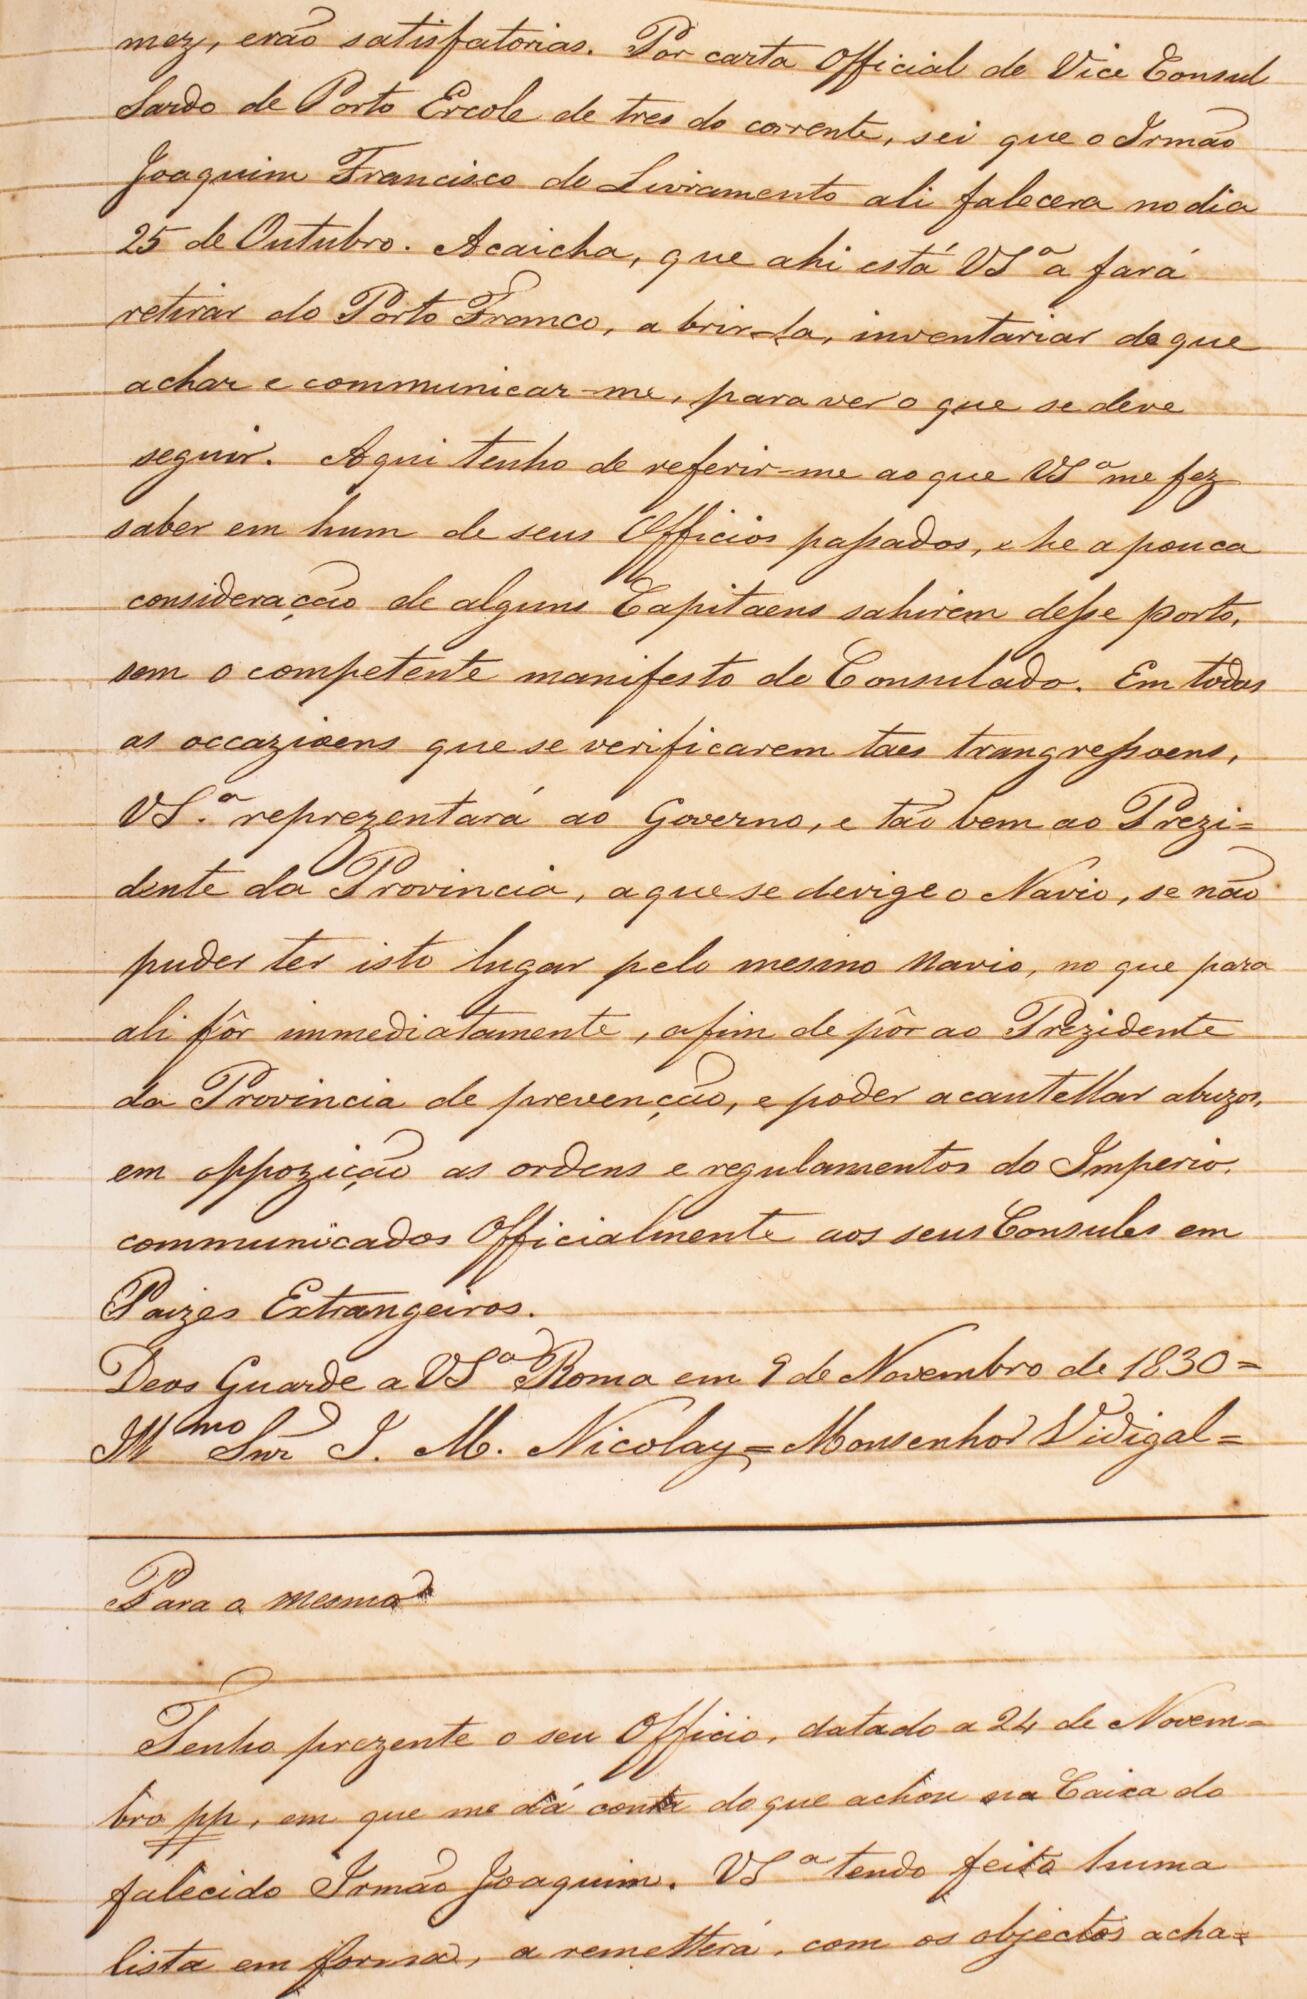 mez, erão satisfatorias. Por carta Official de Vice Consul
Sardo de Porto Ercole de tres do corrente, sei que o Irmão
Joaquim Francisco do Livramento ali falecera no dia
25 de Outubro. Acaicha, que ahi está VSª a fará
retirar do Porto Franco, a brir-la, inventariar do que
achar e communicar-me, para ver o que se deve
seguir. Aqui tenho de referir-me ao que VSª me fez
saber em hum de seus Officios paſsados, e he a pouca
consideração de alguns Capitaens sahirem deſse porto,
sem o competente manifesto do Consulado. Em todas
as occazioens que se verificarem taes trangreſsoens,
VS.ª reprezentará ao Governo, e tão bem ao Prezi=
dente da Provincia, a que se devige o Navio, se não
puder ter isto lugar pelo mesmo Navio, no que para
ali fôr immediatamente, afim de pôr ao Prezidente
da Provincia de prevenção, e poder acautellar abuzos,
em oppozição as ordens e regulamentos do Imperio,
communicados Officialmente aos seus Consules em
Paizes Extrangeiros.
Deos Guarde a VSª Roma em 9 de Novembro de 1830=
Illmo Snr J. M. Nicolay=Monsenhor Vidigal=
Para o mesmo
Tenho prezente o seu Officio, datado a 24 de Novem=
bro pp, em que me dá conta do que achou na Caixa do
falecido Irmão Joaquim. VSª tendo feito huma
lista em forma, a remetterá, com os objectos acha=